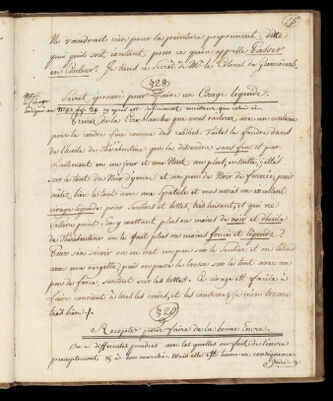 Ne vaudrait rien pour la peinture proprement ditte
quoi qu'ils soit excellent pour ce qu'on appelle Passer
en Couleur. Je tiens ce Secret de Mr. le Colonel de
328
Secret éprouvé pour faire un Cirage liquide.
qui est infiniment meilleur que celui ci
Prenez de la Cire blanche que vous raclerez avec un couteau
pour la rendre fine comme des rubans. Faites la fondre dans
de l'huile de Thérébentine qui la dissoudra sans feu et par
faitement en un jour et une Nuit au plus, ensuite, jettés
sur le tout du Noir d'yvoire et un peu de Noir de fumée, puis
mêlez bien le tout avec une Spatule et vous aurés un excellent
cirage liquide pour Souliers et bottes, très luisant, et qui ne
Salira point. en y mettant plus ou moins de noir et d'huile
de Thérébentine on le fait plus ou moins foncé et liquide.
Pour s'en servir on en met un peu sur le Soulier et on l'étend
avec une vergette, puis on passe la brosse sur le tout avec un
peu de force, surtout sur les bottes. Ce cirage est facile à
faire convient à tous les cuirs, et les conserve, je m'en trouve
très bien.
329
Recepte pour faire de la bonne Encre.
On a differentes poudres avec les quelles on fait de l'encre
promptement & à bon marché. Mais elle est